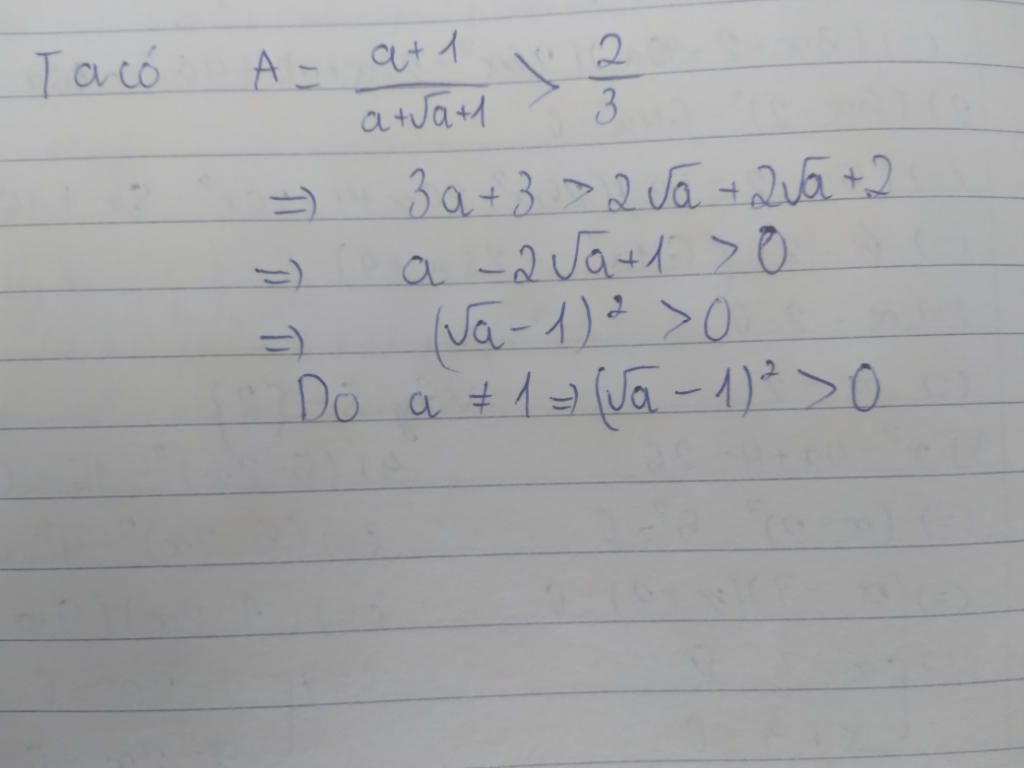 Ta có A = \frac{a+1}{a+\sqrt{a}+1} > \frac{2}{3}
=> 3a + 3 > 2\sqrt{a} + 2\sqrt{a} + 2
=> a - 2\sqrt{a} + 1 > 0
=> (\sqrt{a} - 1)^2 > 0
Do a ≠ 1 => (\sqrt{a} - 1)^2 > 0